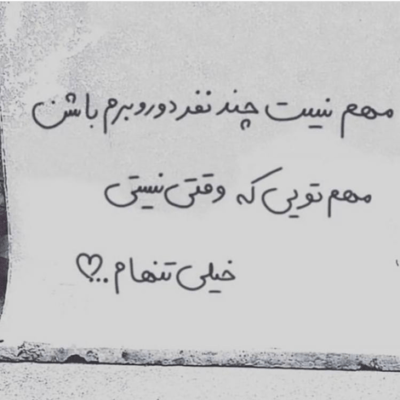 مهم نیست چند نفر دورو برم باشن
مهم تویی که وقتی نیستی
خیلی تنهام...♡